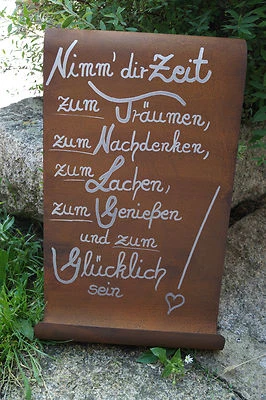 Nimm' dir Zeit
zum Träumen,
zum Nachdenken,
zum Lachen,
zum Genießen
und zum
Glücklich
sein !